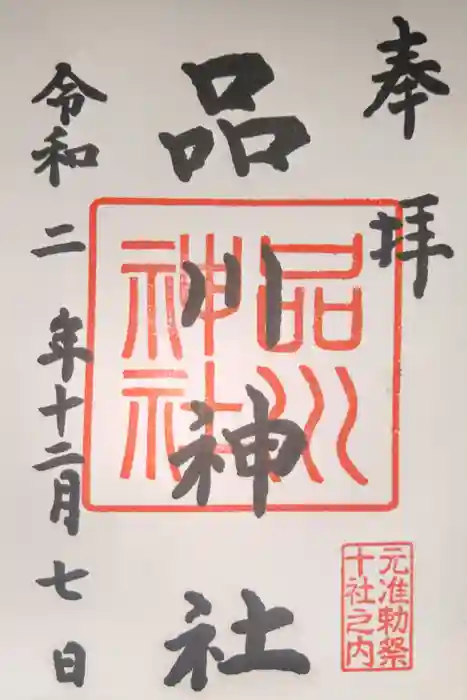 奉拝
品川神社
品川神社
元准勅祭
十社之内
令和二年十二月七日